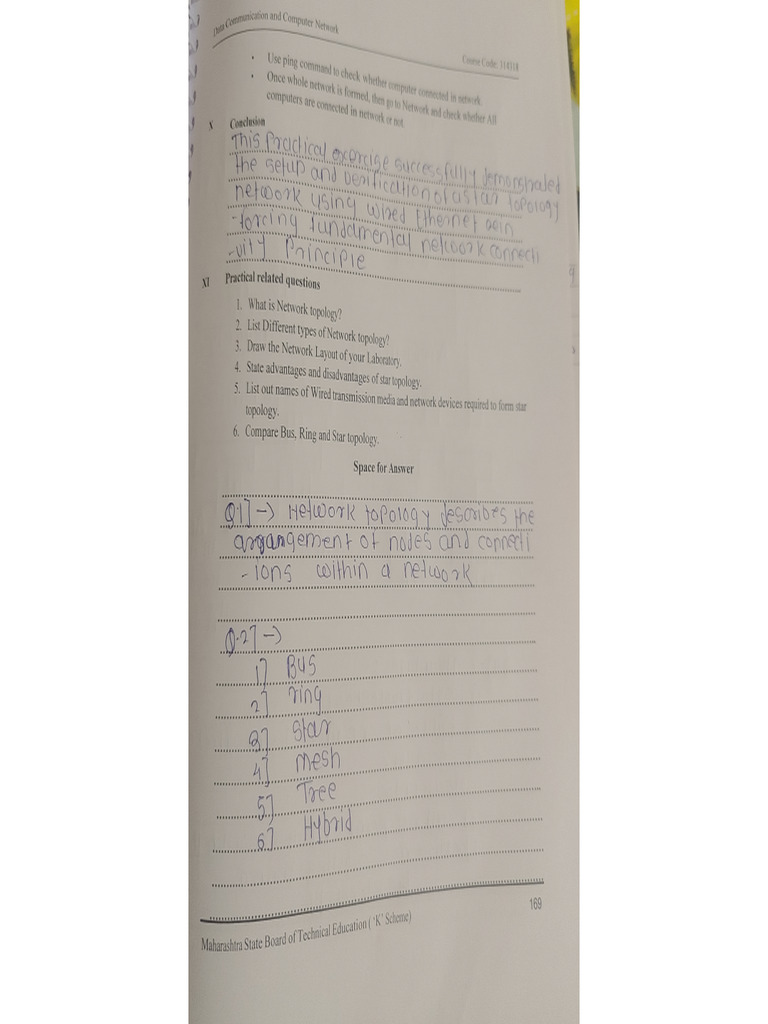 Data Communication and Computer Network
Course Code: 314318
• Use ping command to check whether computer connected in network.
• Once whole network is formed, then go to Network and check whether All
computers are connected in network or not.
X Conclusion
This Practical exercise successfully demonstrated
the setup and verification of a star topology
network using wired Ethernet rein
-forcing fundamental network connecti
-vity Principle
XI Practical related questions
1. What is Network topology?
2. List Different types of Network topology?
3. Draw the Network Layout of your Laboratory.
4. State advantages and disadvantages of star topology.
5. List out names of Wired transmission media and network devices required to form star
topology.
6. Compare Bus, Ring and Star topology.
Space for Answer
Q.1] -> Network topology describes the
arrangement of nodes and connecti
-ions within a network
Q.2] ->
1] Bus
2] ring
3] star
4] mesh
5] Tree
6] Hybrid
169
Maharashtra State Board of Technical Education ( 'K' Scheme)